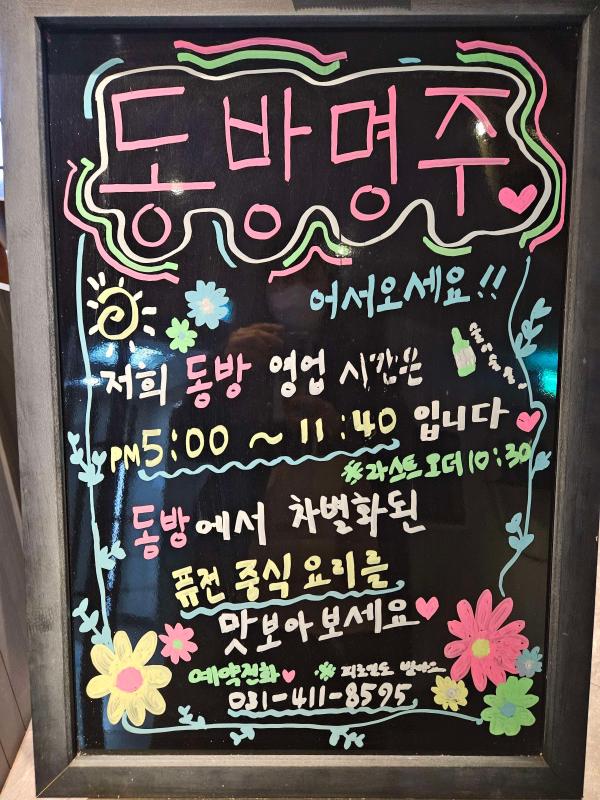 동방명주
어서오세요!!
저희 동방 영업 시간은
PM5:00 ~ 11:40 입니다
※라스트오더10:30
동방에서 차별화된
퓨전 중식 요리를
맛보아보세요
예약전화 ※
031-411-8595